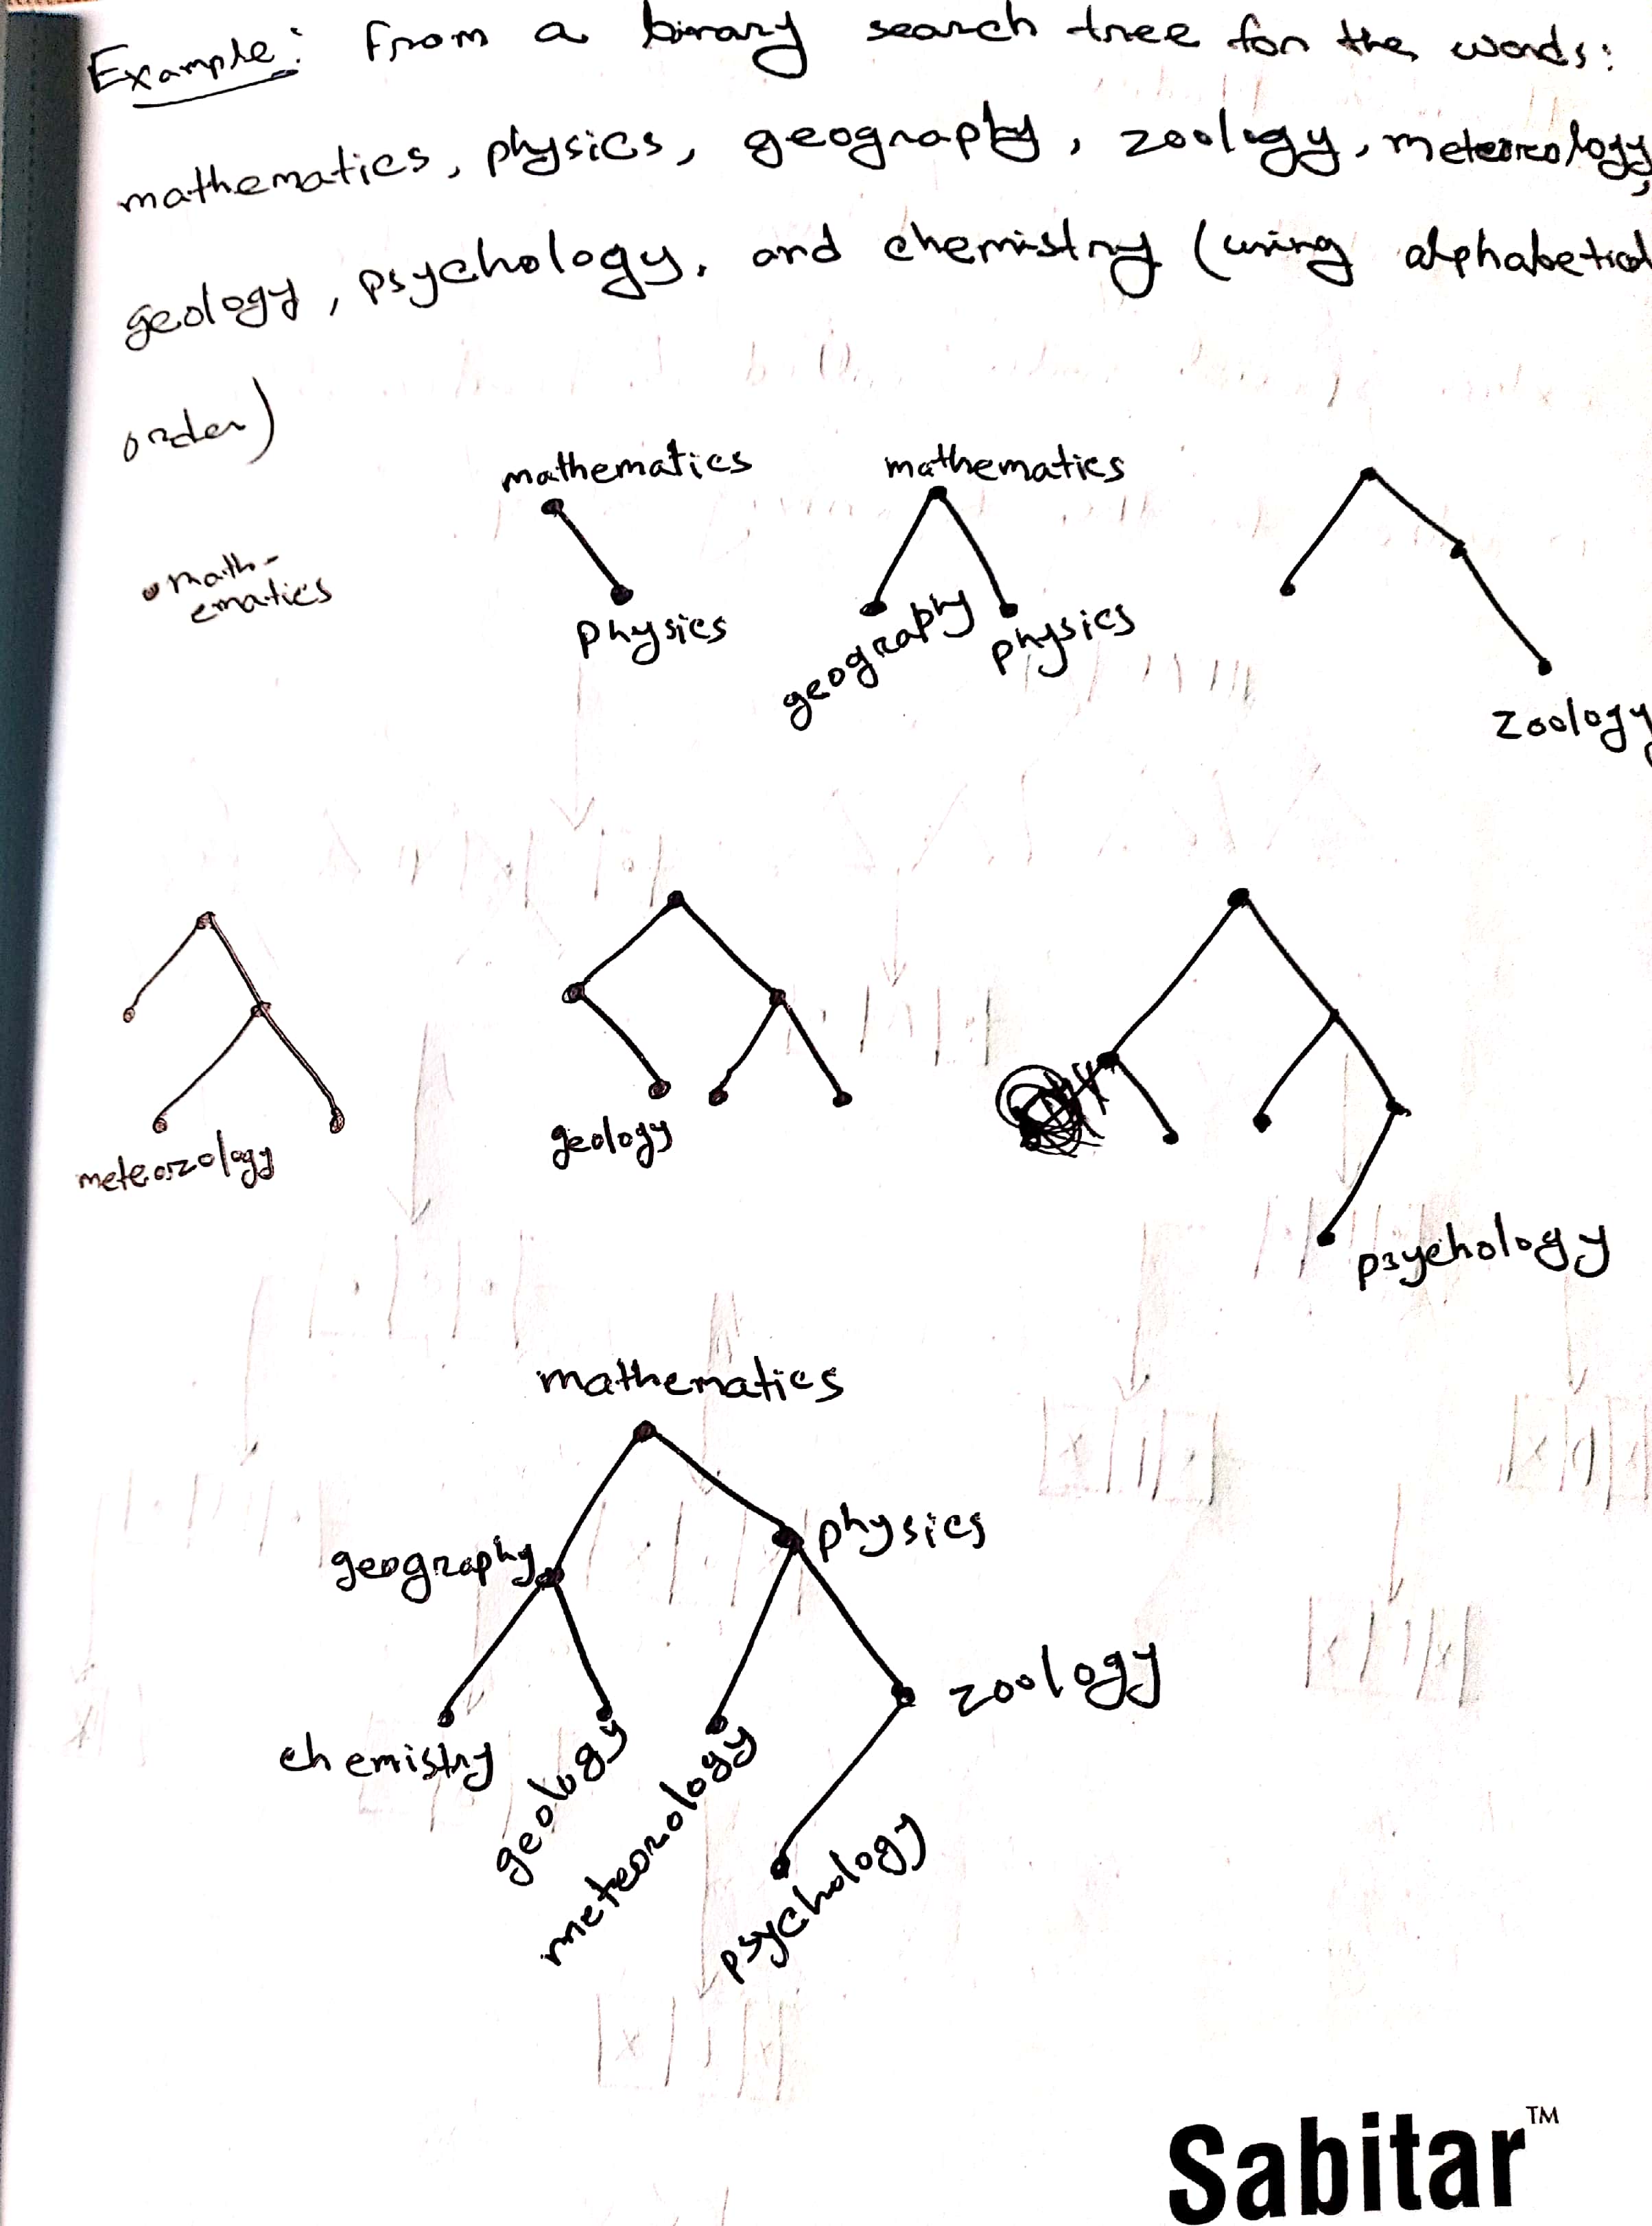 Example: From a binary search tree for the words:
mathematics, physics, geography, zoology, meteorology,
geology, psychology, and chemistry (using alphabetical
order)
mathematics
mathematics
math-
ematics
physics
geography
physics
zoology
meteorology
geology
psychology
mathematics
geography
physics
zoology
chemistry
geology
meteorology
psychology
Sabitar™